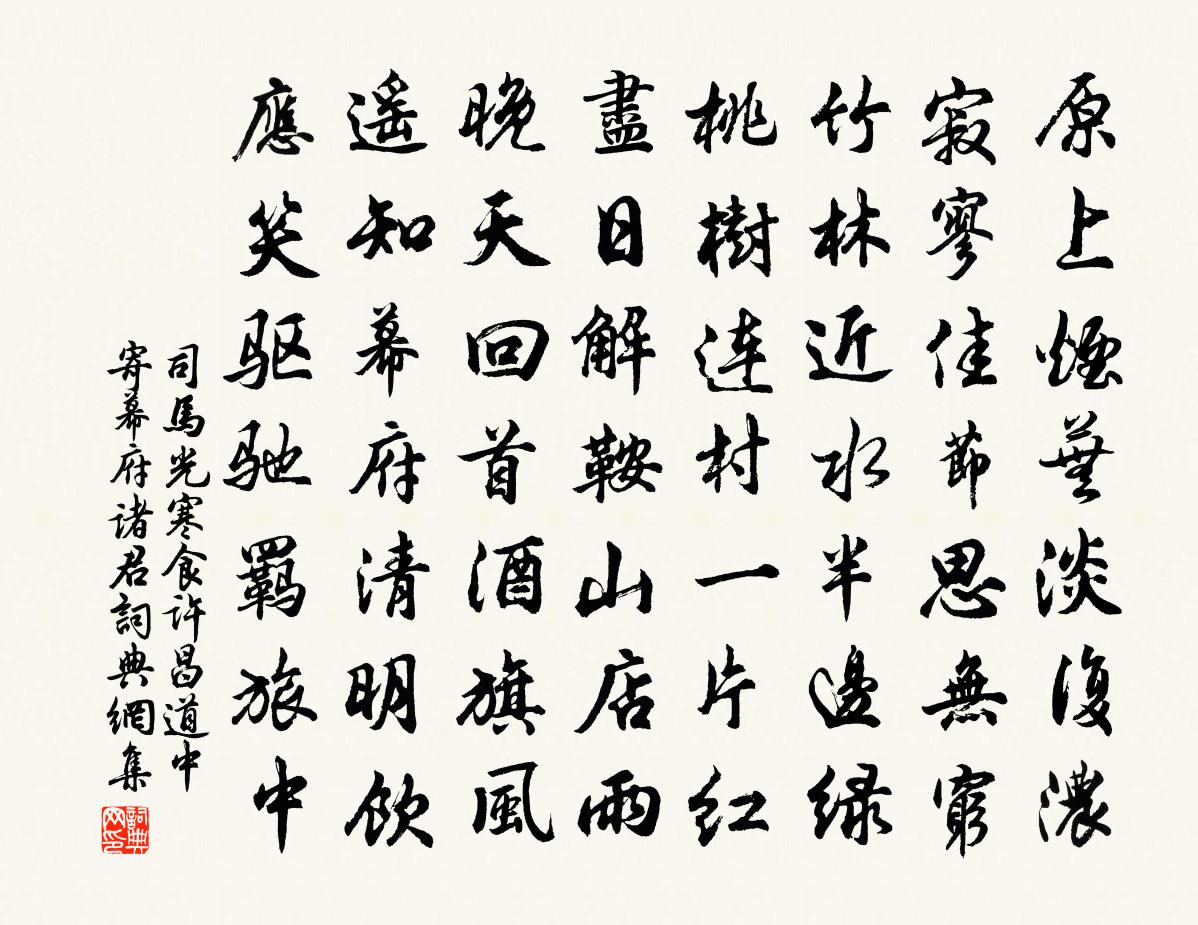 原上煙蕪淡復濃
寂寥佳節思無窮
竹林近水半邊緑
桃樹連村一片紅
盡日解鞍山店雨
晚天回首酒旗風
遥知幕府清明飲
應笑驱驰羈旅中
司馬光寒食許昌道中
寄幕府诸君詞典網集
詞典
网印